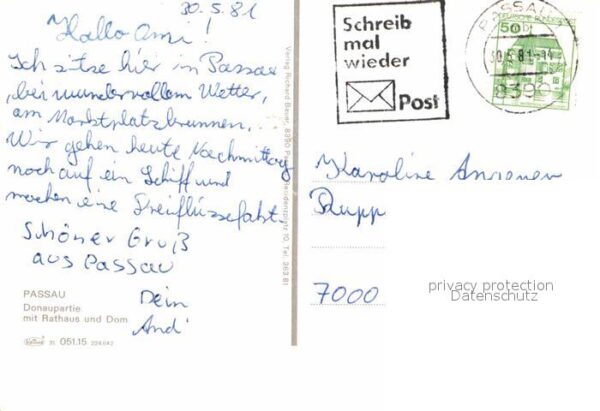 30.5.81
Hallo Ami!
Ich sitze hier in Passau
bei wundervollem Wetter,
am Marktplatzbrunnen...
Wir gehen heute Nachmittag
noch auf ein Schiff und
machen eine Dreiflüssefahrt.
Schöner Gruß
aus Passau
Dein
Andi
PASSAU
Donaupartie
mit Rathaus und Dom
051.15
Verlag Richard Bauer, 8390 Passau, Residenzplatz 10, Tel. 363 81
Schreib
mal
wieder
Post
PASSAU
30.5.81-14
8390
DEUTSCHE BUNDESPOST
50
Karoline
Rupp
7000
privacy protection
Datenschutz